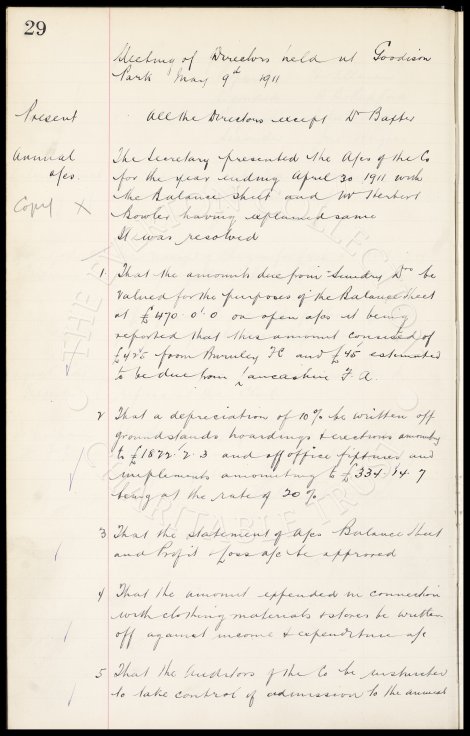 29
Meeting of Directors held at Goodison
Park May 9th 1911
Present All the Directors except Dr Baxter
Annual a/cs The Secretary presented the A/cs of the Co
for the year ending April 30 1911 with
Copy X the Balance Sheet and Mr Herbert
Bowler having explained same
It was resolved
1 That the amounts due from Sundry Drs be
valued for the purposes of the Balance Sheet
at £470.0.0 on open a/cs it being
reported that this amount consisted of
£425 from Burnley FC and £45 estimated
to be due from Lancashire F.A.
2 That a depreciation of 10% be written off
ground stands hoardings & erections amounting
to £1822.2.3 and off office fixtures and
implements amounting to £334.14.7
being at the rate of 20%
3 That the statement of A/cs Balance Sheet
and Profit & Loss a/c be approved
4 That the amount expended in connection
with clothing materials & stores be written
off against income & expenditure a/c
5 That the Auditors of the Co be instructed
to take control of admission to the annual
THE EVERTON COLLECTION
CHARITABLE TRUST